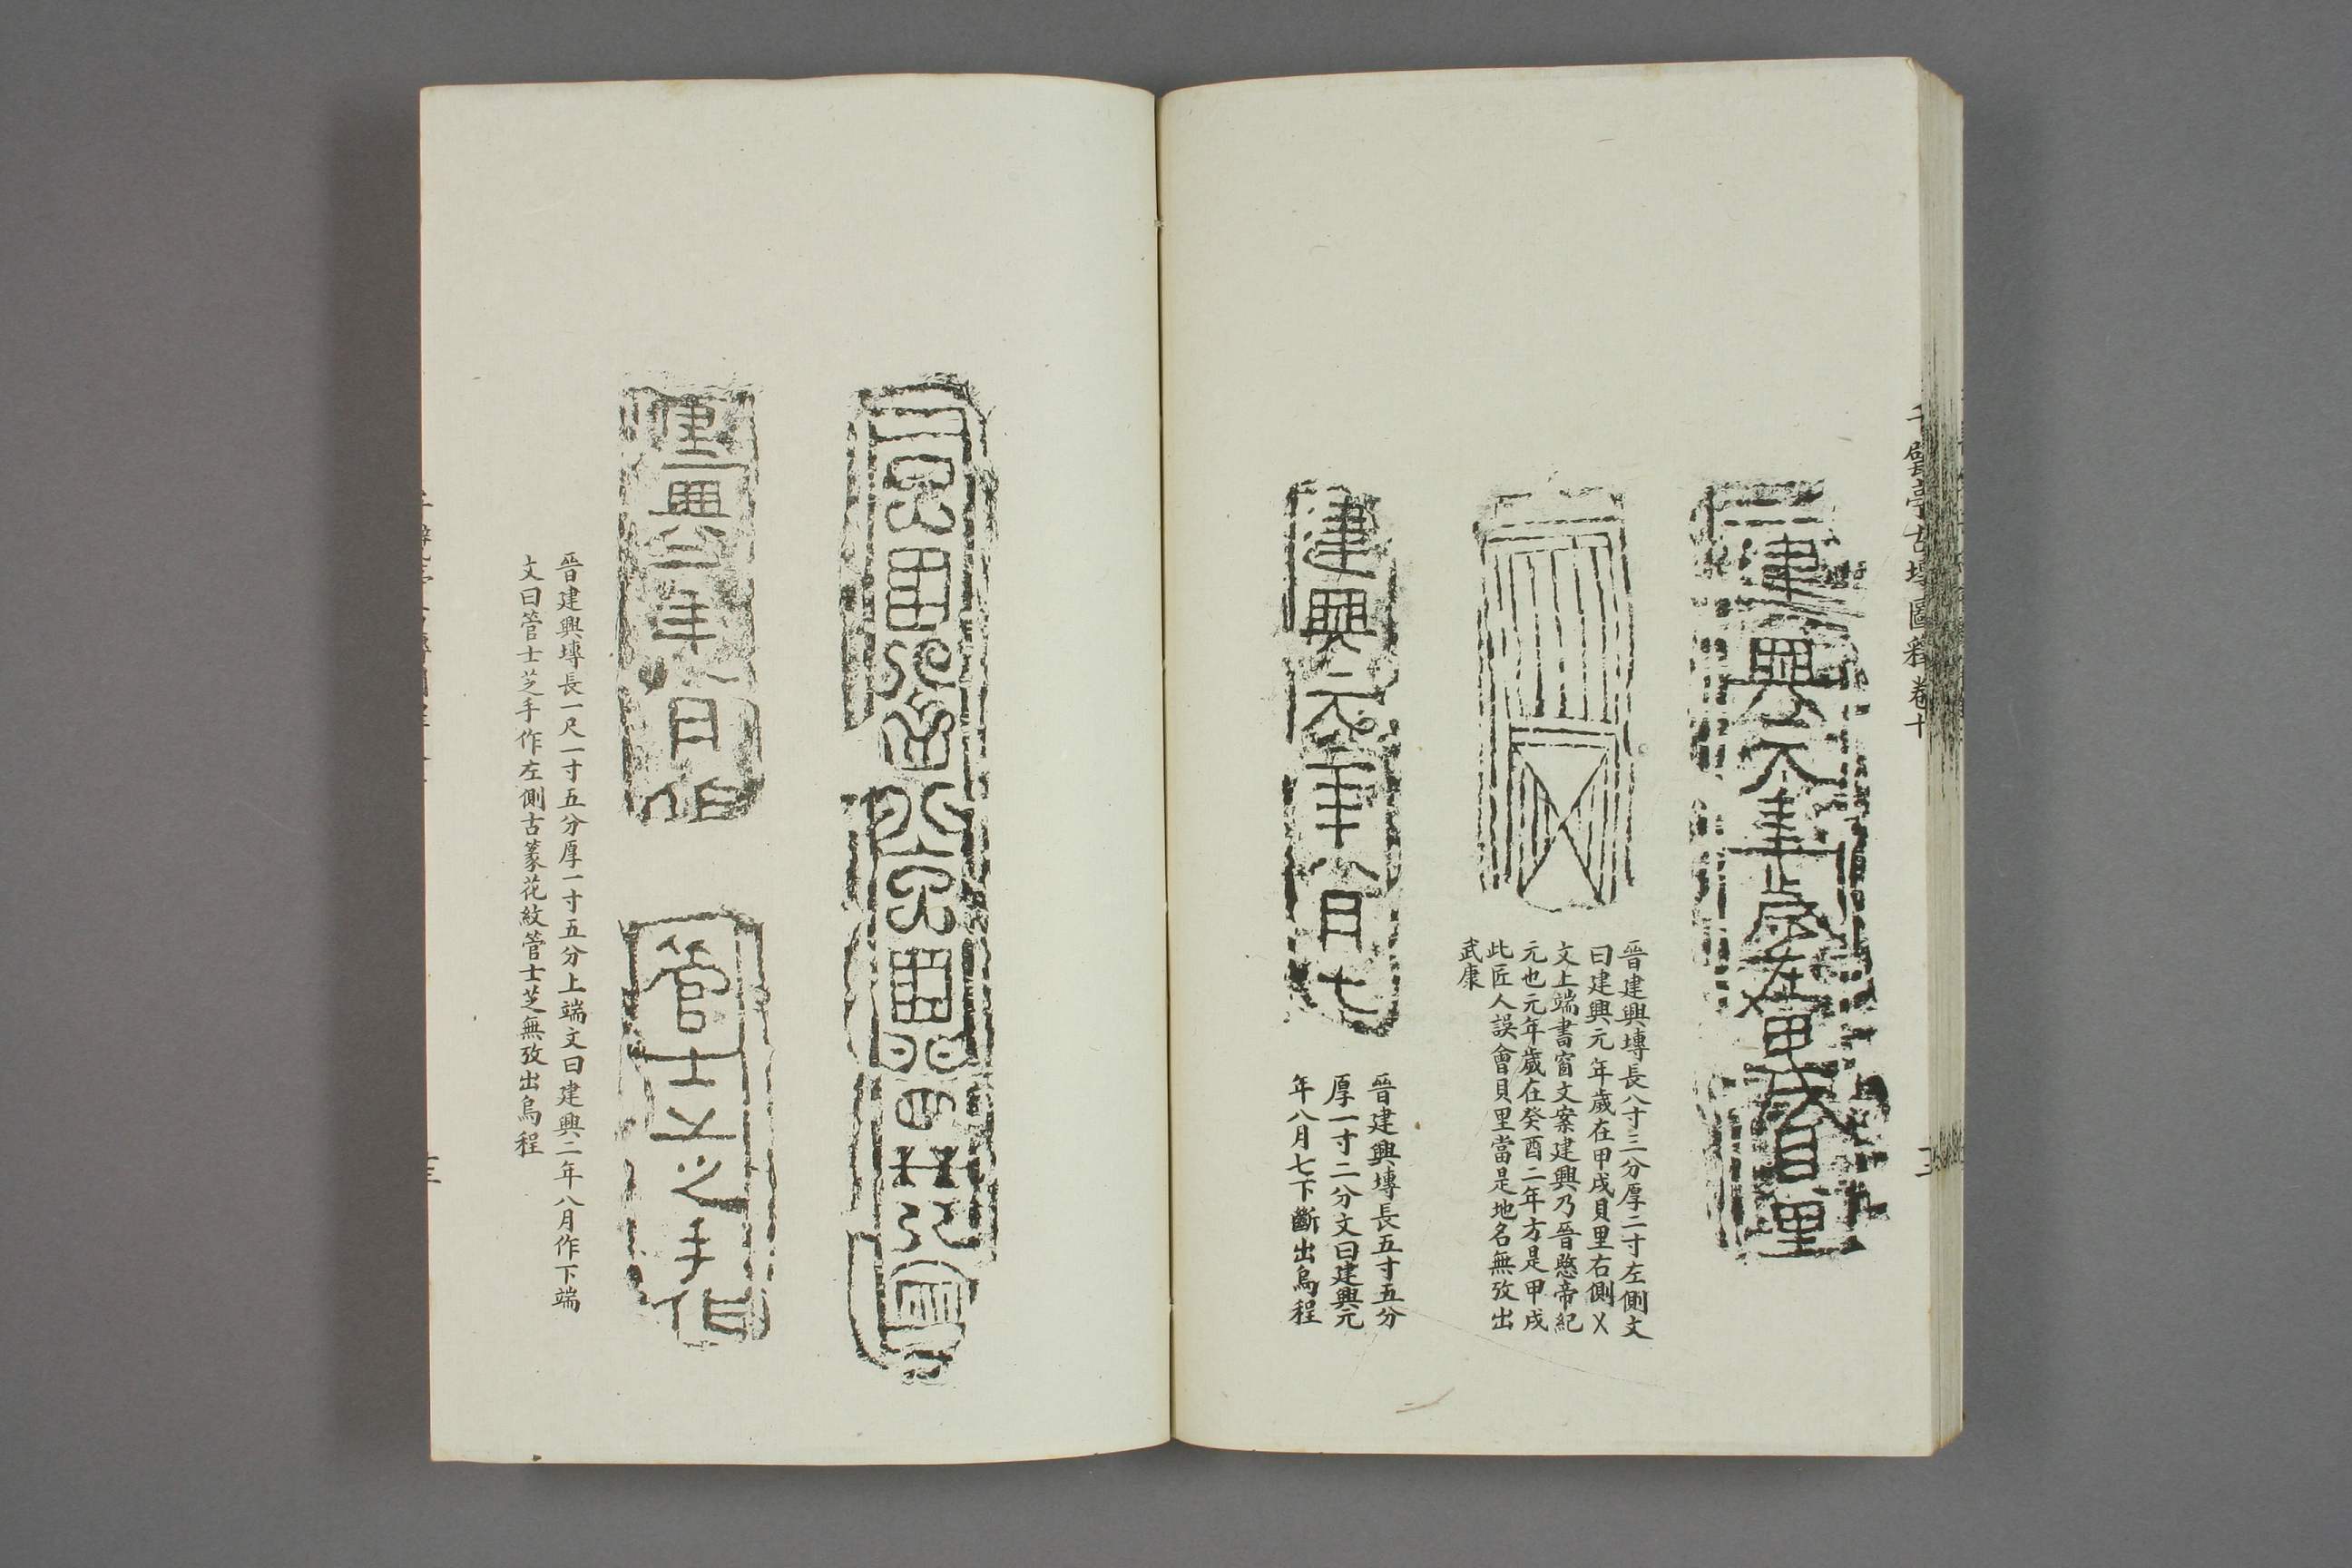 千甓亭古塼圖釋卷十
建興元年歲在甲戌貝里
晉建興塼長八寸三分厚二寸左側文
曰建興元年歲在甲戌貝里右側乂
文上端書窗文案建興乃晉愍帝紀
元也元年歲在癸酉二年方是甲戌
此匠人誤會貝里當是地名無攷出
武康
建興元年八月七
晉建興塼長五寸五分
厚一寸二分文曰建興元
年八月七下斷出烏程
建興二年八月作
管士芝手作
晉建興塼長一尺一寸五分厚一寸五分上端文曰建興二年八月作下端
文曰管士芝手作左側古篆花紋管士芝無攷出烏程